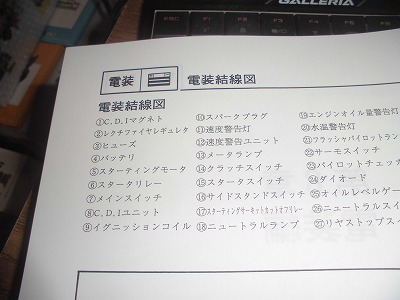 GALLERIA
ESC
電装
電装結線図
電装結線図
①C.D.Iマグネト
②レクチファイヤレギュレタ
③ヒューズ
④バッテリ
⑤スターティングモータ
⑥スタータリレー
⑦メインスイッチ
⑧C.D.Iユニット
⑨イグニッションコイル
⑩スパークプラグ
⑪速度警告灯
⑫速度警告ユニット
⑬メータランプ
⑭クラッチスイッチ
⑮スタータスイッチ
⑯サイドスタンドスイッチ
⑰スターティングサーキットカットオフリレー
⑱ニュートラルランプ
⑲エンジンオイル量警告灯
⑳水温警告灯
㉑フラッシャパイロットラン
㉒サーモスイッチ
㉓パイロットチェッカ
㉔ダイオード
㉕オイルレベルゲー
㉖ニュートラルス
㉗リヤストップス